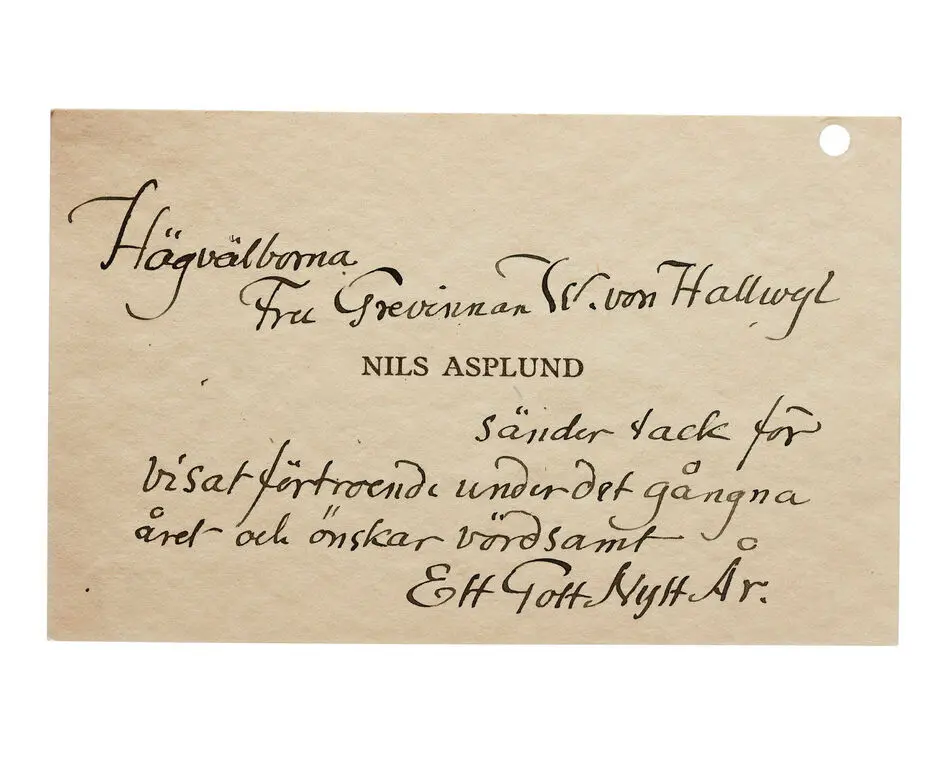 Högvälborna
Fru Grevinnan W. von Hallwyl
NILS ASPLUND
sänder tack för
visat förtroende under det gångna
året och önskar vördsamt
Ett Gott Nytt År.